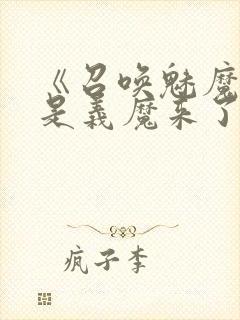 《召唤魅魔
是义魔来了
疯子李